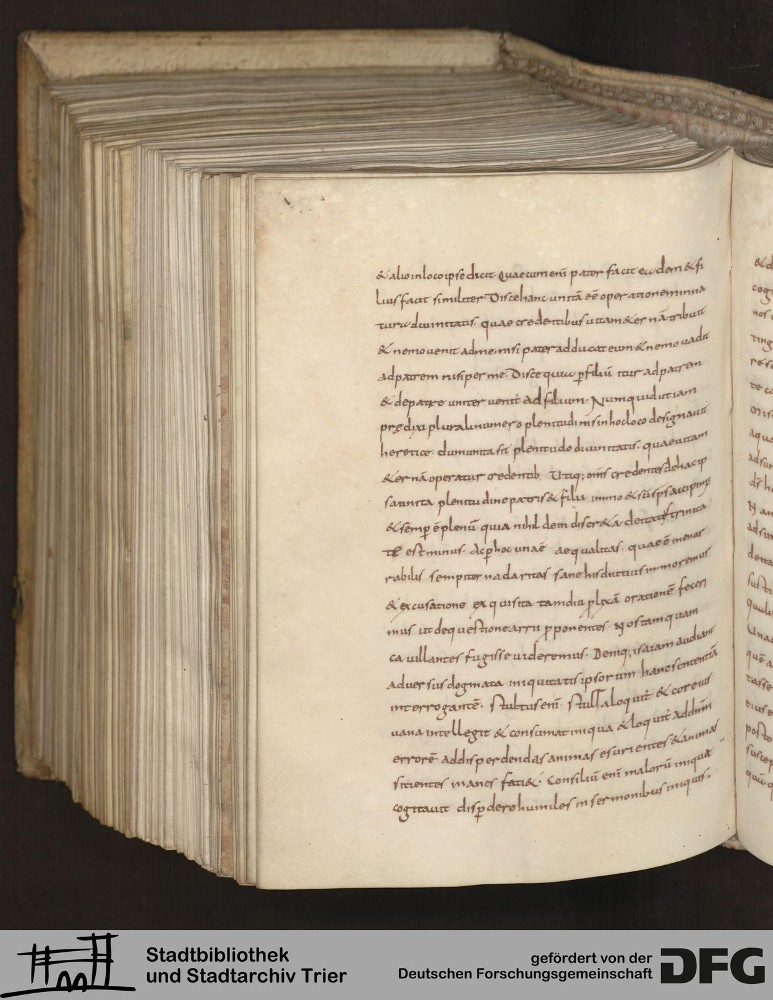 & alio in loco ipse dicit Quaecum enī pater facit eadem & fi
lius facit similiter Disce hanc unitā eē operationem in na
tura diuinitatis quae credentibus uitam &ernā tribuit
& nemo uenit ad me nisi pater adducat eum & nemo uadit
ad patrem nisi per me Disce quia p filiū itur ad patrem
& de patre uniter uenit ad filium Numquid utiam
prędixi plurali numero plenitudinis in hoc loco designauit
heretice dum unita sit plenitudo diuinitatis quae uitam
&ernā operatur credentib; Utiq; omīs credentes de hac ip
sa uncta plenitudine patris & filii immo & sc̄i sp̄s accipim;
& semp ē plenū quia nihil dein discr&a deitate trinita
est minus Ac p hoc una ē aequalitas quae ē inenar
rabilis sempiterna claritas sane his diutius inmoremus
& excusatione exquisita tamdiu plixā orationē feceri
mus ut de questione arrii pponentes Nos tamquam
cauillantes fugisse uideremus Deniq; isaiam audiam
aduersus dogmata iniquitatis ipsorum hanc sententiā
interrogantē Stultus enī stulta loquit & cor eius
uana intellegit & consumat iniqua & loquit ad dnm
errorē ad disperdendas animas esurientes & animas
sitientes inanes faci& Consiliū enī malorū iniqua
cogitauit dispdere humiles in sermonibus iniquis
Stadtbibliothek
und Stadtarchiv Trier
gefördert von der
Deutschen Forschungsgemeinschaft
DFG